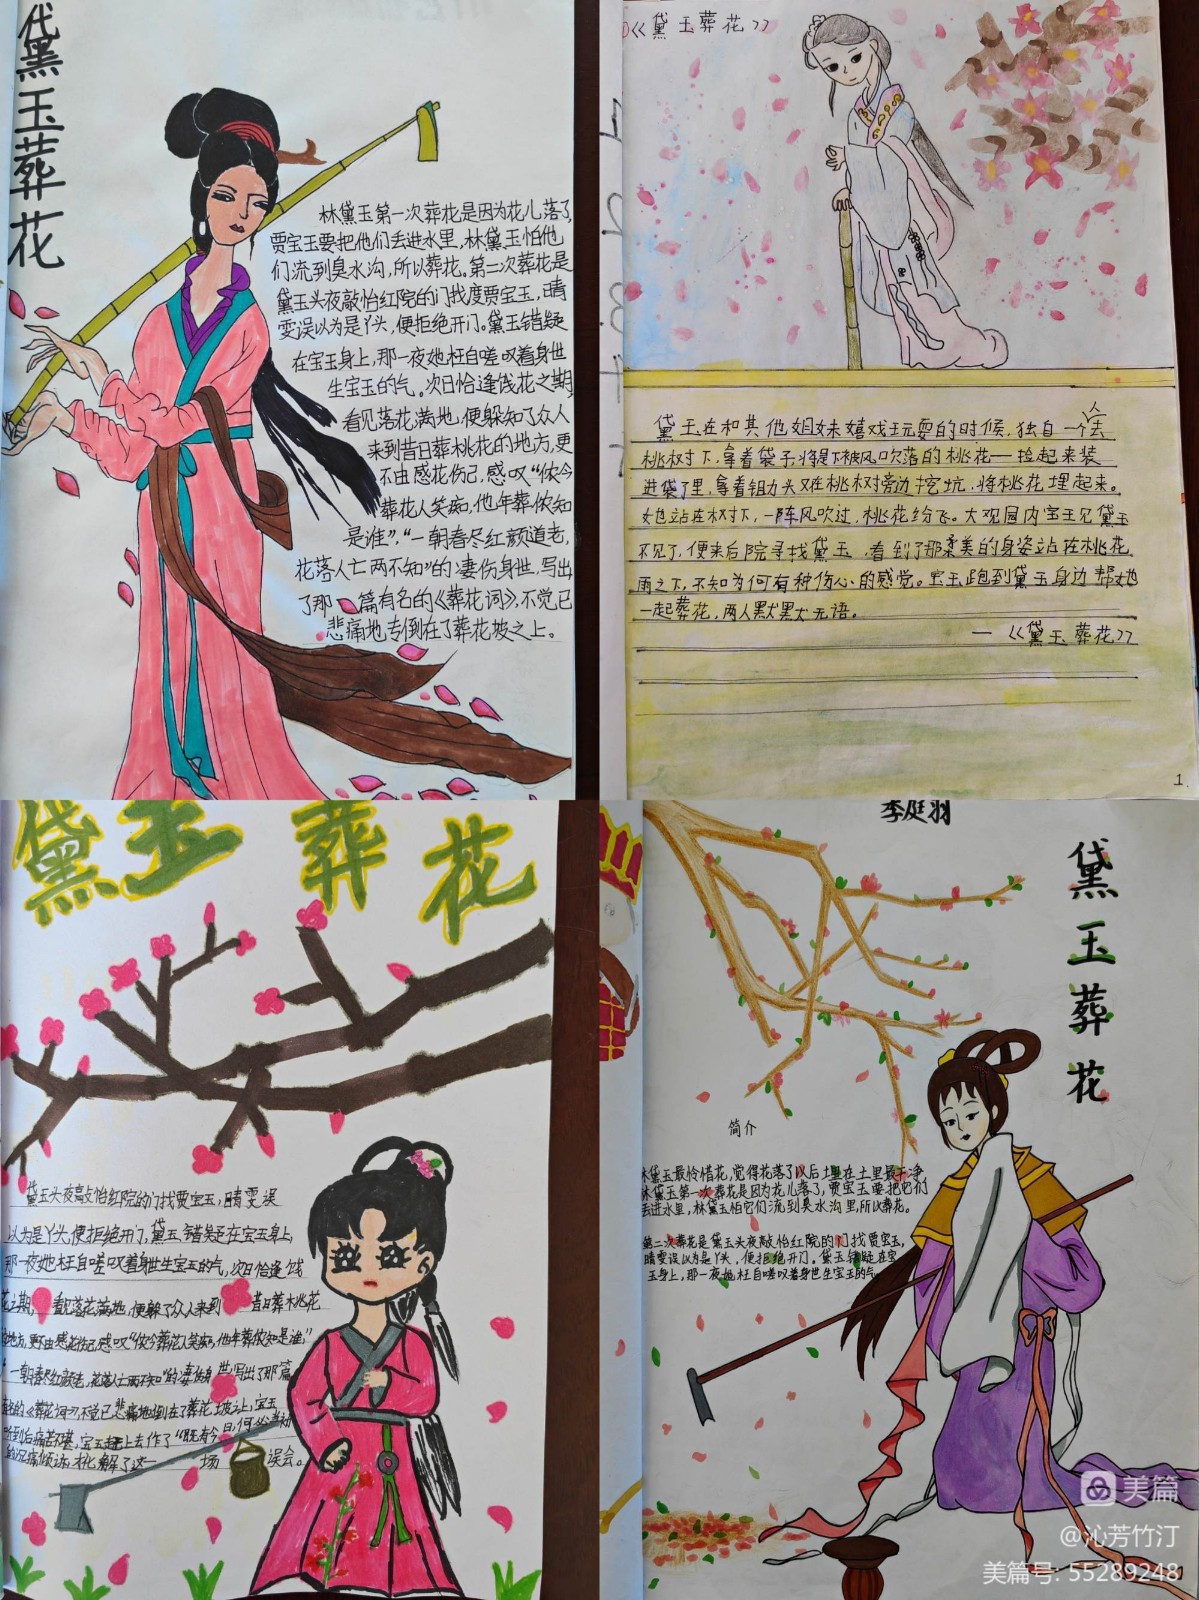 黛玉葬花
林黛玉第一次葬花是因为花儿落了,
贾宝玉要把他们丢进水里,林黛玉怕他
们流到臭水沟,所以葬花。第二次葬花是
黛玉头夜敲怡红院的门找度贾宝玉,晴
雯误以为是丫头,便拒绝开门。黛玉错疑
在宝玉身上,那一夜她枉自嗟叹着身世
生宝玉的气。次日恰逢饯花之期,
看见落花满地,便躲知了众人
来到昔日葬桃花的地方,更
不由感花伤己,感叹“侬今
葬花人笑痴,他年葬侬知
是谁”,“一朝春尽红颜道老,
花落人亡两不知”的凄伤身世,写出
了那一篇有名的《葬花词》,不觉已
悲痛地专倒在了葬花坡之上。
《黛玉葬花》
黛玉在和其他姐妹嬉戏玩耍的时候,独自一个人去
桃树下,拿着袋子将地下被风吹落的桃花一一捡起来装
进袋子里,拿着锄头在桃树旁边挖坑,将桃花埋起来。
她站在树下,一阵风吹过,桃花纷飞。大观园内宝玉见黛玉
不见了,便来后院寻找黛玉,看到了那柔美的身姿站在桃花
雨之下,不知为何有种伤心的感觉。宝玉跑到黛玉身边帮她
一起葬花,两人默默无语。
—《黛玉葬花》
1
黛玉葬花
黛玉头夜敲怡红院的门找贾宝玉,晴雯误
以为是丫头,便拒绝开门,黛玉错疑在宝玉身上,
那一夜她枉自嗟叹着身世生宝玉的气,次日恰逢饯
花之期,看见落花满地,便躲了众人来到昔日葬桃花
地方,更不由感花伤己,感叹“侬今葬花人笑痴,他年葬侬知是谁,”
“一朝春尽红颜老,花落人亡两不知”的凄伤身世,写出了那篇
《葬花词》,不觉已悲痛地倒在了葬花坡上,宝玉
听到后痛苦不堪,宝玉赶上去作了“既有今日,何必当初
倾诉,化解了这一场误会。
李庭羽
黛玉葬花
简介
林黛玉最怜惜花,觉得花落了以后埋在土里最干净
林黛玉第一次葬花是因为花儿落了,贾宝玉要把它们
丢进水里,林黛玉怕它们流到臭水沟里,所以葬花。
第二次葬花是黛玉头夜敲怡红院的门找贾宝玉,
晴雯误以为是丫头,便拒绝开门。黛玉错疑在宝
玉身上,那一夜她枉自嗟叹着身世生宝玉的气
美篇
@沁芳竹汀
美篇号: 55289248